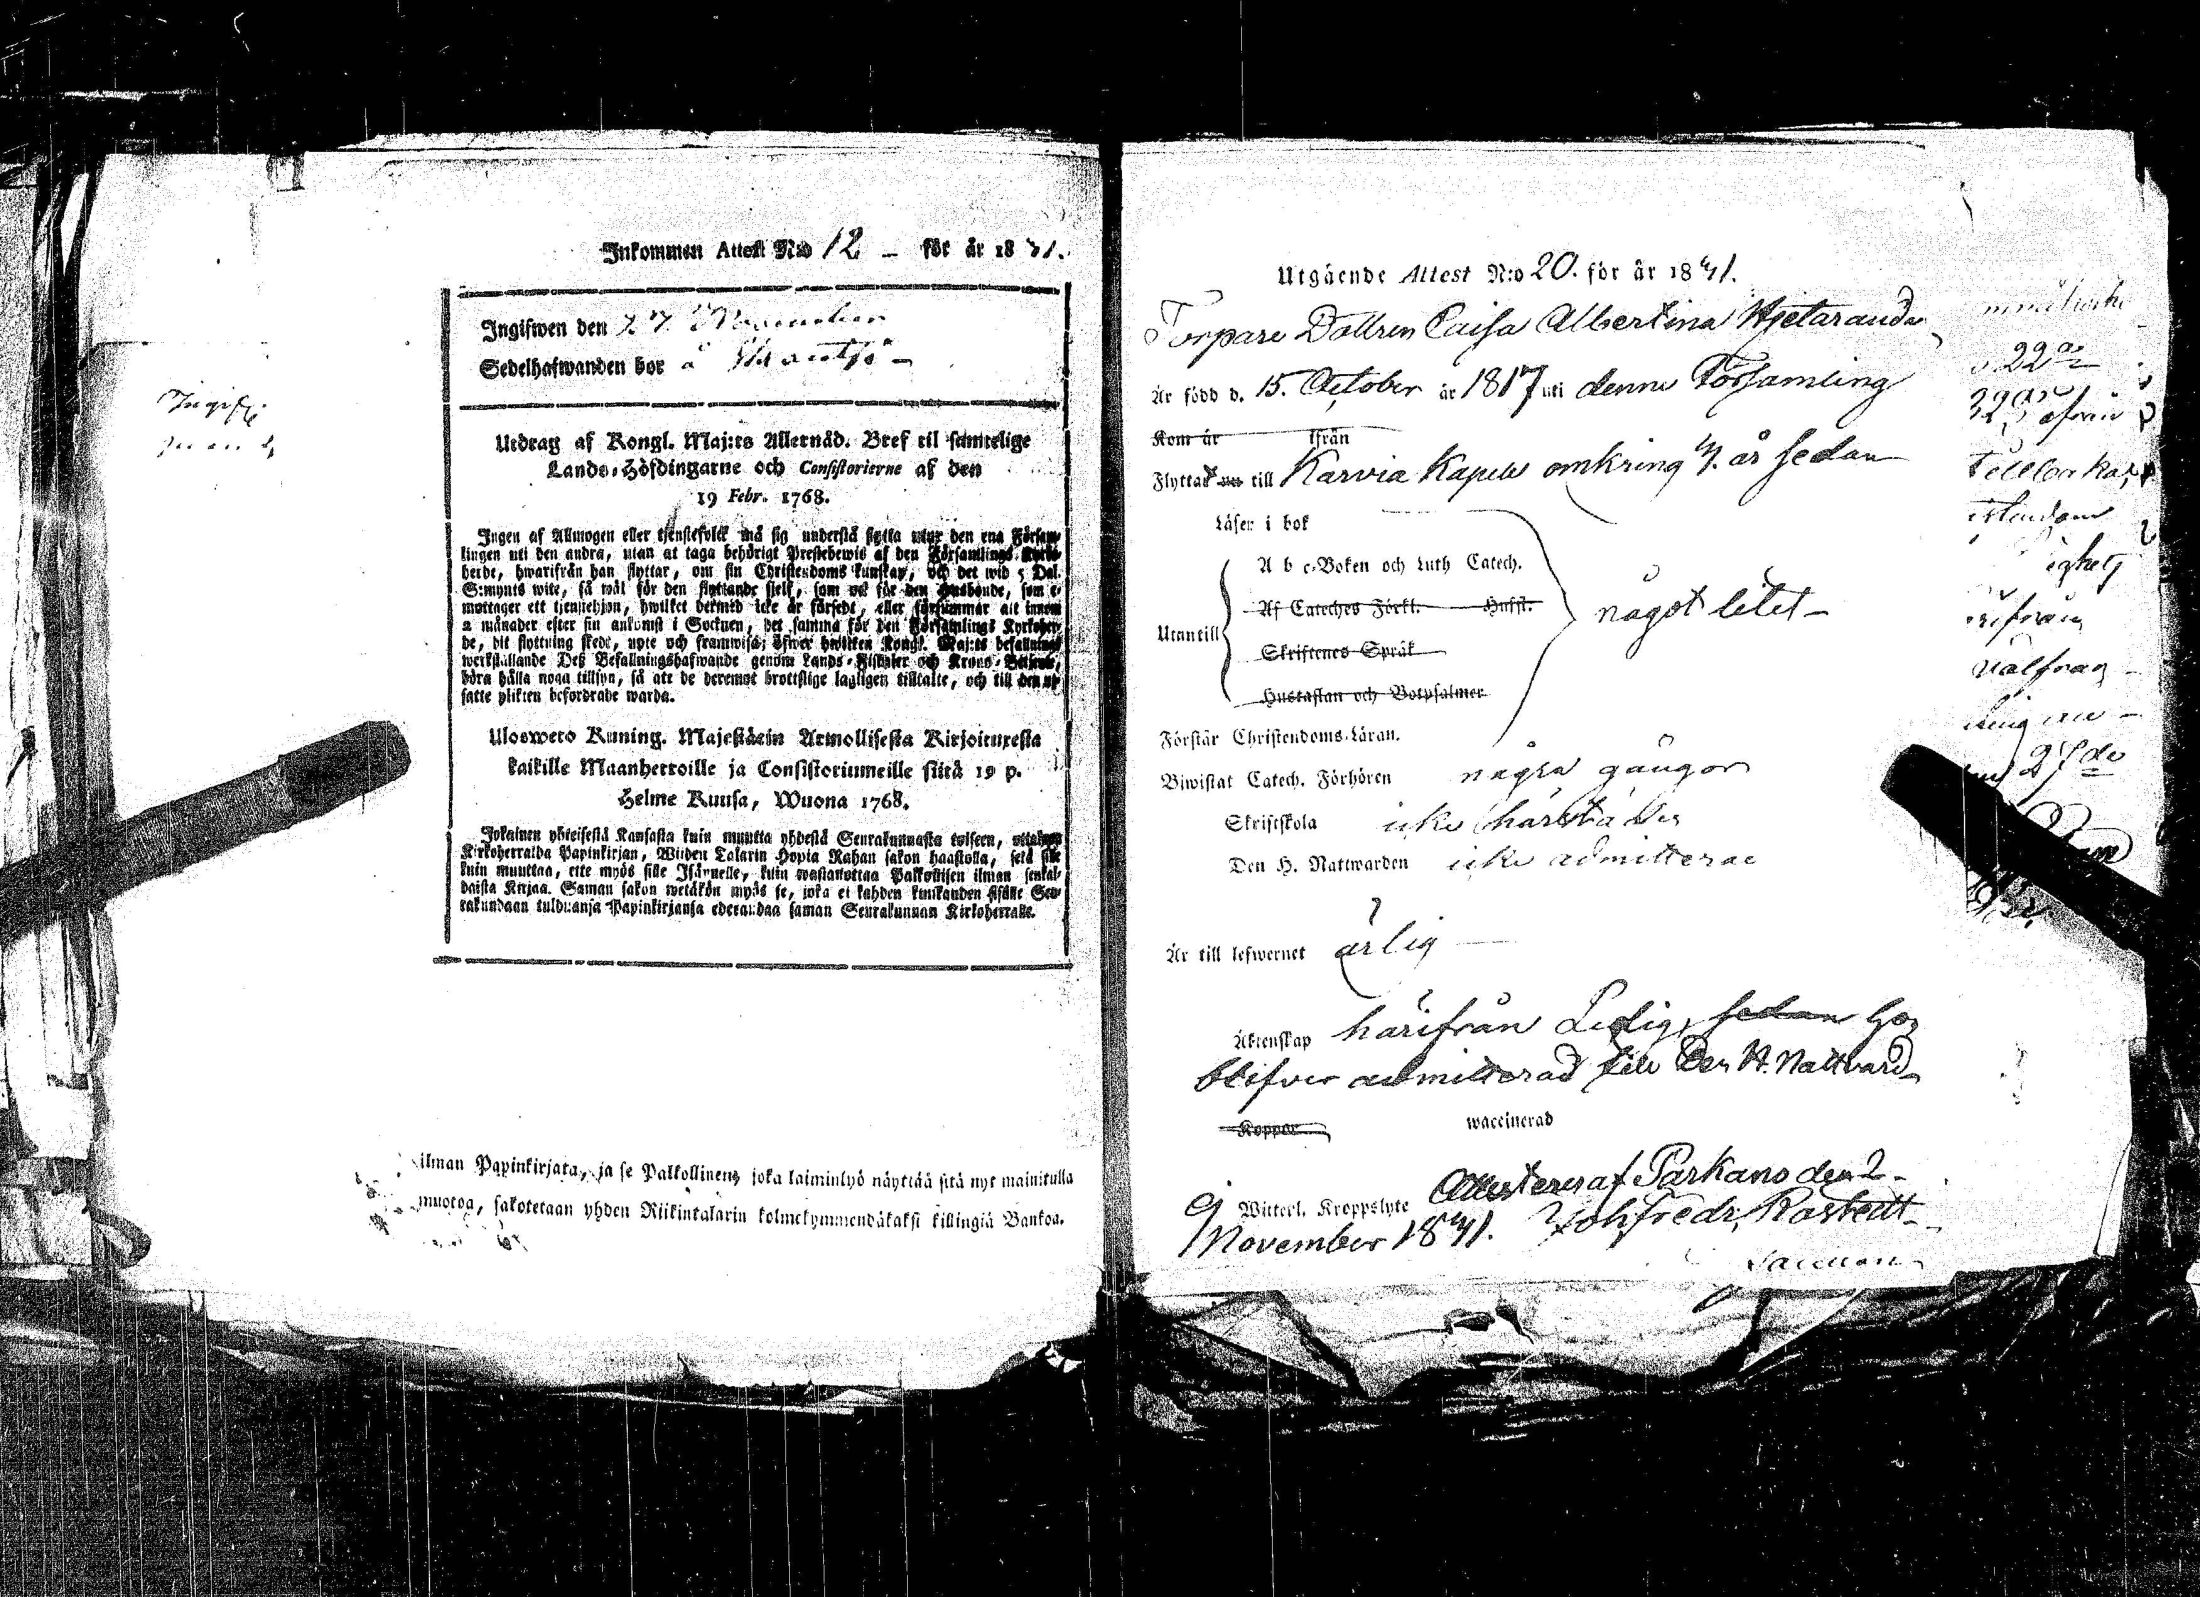 Inkommen Attest N:o 12 – för år 1841.
Ingifwen den 27 November
Sedelhafwanden bor å
Utdrag af Kongl. Maj:ts Allernåd. Bref til samtelige
Lands-Höfdingarne och Consistorierne af den
19 Febr. 1768.
Ingen af Allmogen eller tjenstefolck må sig understå flytta utur den ena Försam-
lingen uti den andra, utan at taga behörigt Prestebewis af den Församlings Kyrko-
herde, hwarifrån han flyttar, om sin Christendoms kunskap, och det wid 5 Dal.
S:mynts wite, så wäl för den flyttande sielf, som ock för den Husbonde, som e-
mottager ett tjenstehjon, hwilket dermed icke är försedt, eller försummar att innom
2 månader efter sin ankomst i Socknen, det samma för den Församlings Kyrkoher-
de, dit flyttning skedt, upte och framwisa; öfwer hwilken Kongl. Maj:ts befallnings
werkställande Deß Befallningshafwande genom Lands-Fiskaler och Krono-Betjente,
böra hålla noga tillsyn, så att de deremot brottslige lagligen tilltalte, och till den ut-
satte plikten befordrade warda.
Ulosweto Kuning. Majestätin Armollisesta Kirjoituxesta
kaikille Maanherroille ja Consistoriumeille siitä 19 p.
Helme Kuusa, Wuona 1768.
Jokainen yhteisestä Kansasta kuin muutta yhdestä Seurakunnasta toiseen, ottakoon
Kirkoherralda Papinkirjan, Wiiden Talarin Hopia Rahan sakon haastolla, setä sille
kuin muuttaa, ette myös sille Isännelle, kuin wastanottaa Palkollisen ilman senkal-
daista Kirjaa. Saman sakon wetäkön myös se, joka ei kahden kuukauden sisälle Seu-
rakundaan tulduansa Papinkirjansa edeswdaa saman Seurakunnan Kirkoherralle.
ilman Papinkirjata, ja se Palkollinen, joka laiminlyö näyttää sitä nyt mainitulla
muotoa, sakotetaan yhden Riikintalarin kolmekymmendäkaksi killingiä Bankoa.
Utgående Attest N:o 20. för år 1841.
Torpare Dottren Caisa Albertina Hjetaranda
Är född d. 15. October år 1817 uti denne Församling
Kom år ifrån
Flyttat nu till Karvia Kapell omkring 4. år sedan
Läser i bok
A b c-Boken och Luth Catech.
Af Cateches Förkl. Husst.
Utantill
något litet –
Skriftenes Språk
Hustaflan och Botpsalmer
Förstår Christendoms-Läran.
Biwistat Catech. Förhören några gångor
Skriftskola icke härstädes
Den H. Nattwarden icke admitterad
Är till lefwernet ärlig
Äktenskap härifrån Ledig, sedan hon
blifver admitterad till den H. Nattvard
Koppor waccinerad
ej Witterl. Kroppslyte Attesteras af Parkano den 2
November 1841. Joh. Fredr. Rostedt